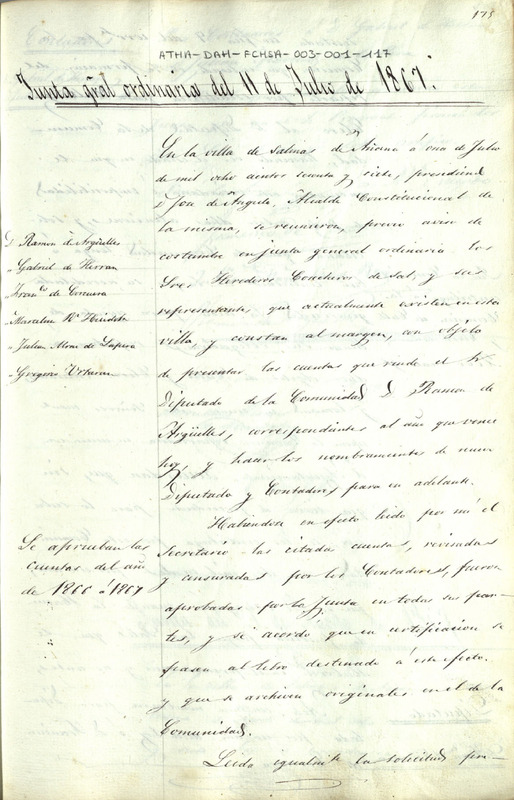 175
ATHA-DAH-FCHSA-003-001-117
Junta gral ordinaria del 11 de Julio de 1867.
En la villa de Salinas de Añana á once de Julio
de mil ocho cientos sesenta y siete, presidiend
D. José de Angulo, Alcalde Constitucional de
la misma, se reunieron, previo aviso de
costumbre en junta general ordinaria los
Sres Herederos Concheros de sal, y sus
representantes que actualmente existen en esta
villa, y constan al margen, con objeto
de presentar las cuentas que rinde el Sr
Diputado de la Comunidad D. Ramon de
Argüelles, correspondientes al año que vence
hoy, y hacer los nombramientos de nuevo
Diputado y Contadores para en adelante.
D. Ramon de Argüelles
" Gabriel de Herran
Franco de Corcuera
Marcelino
" Julian
" Gregorio Urturan
Habiendose en efecto leido por mi el
Secretario las citadas cuentas, revisadas
y censuradas por los Contadores, fueron
aprobadas por la Junta en todas sus par-
tes, y se acordó que en certificacion se
pasen al libro destinado á este efecto.
y que se archiven originales en el de la
Comunidad.
Se aprueban las
cuentas del año
de 1866 á 1867
Leida igualmte la solicitud pre-